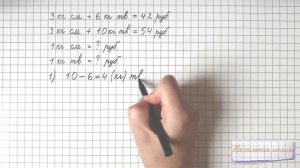 3 кг см. + 6 кг тв. = 42 руб
3 кг см. + 10 кг тв. = 54 руб
1 кг см. = ? руб.
1 кг тв. = ? руб.
1) 10 - 6 = 4 (кг) тв
Начальная школа